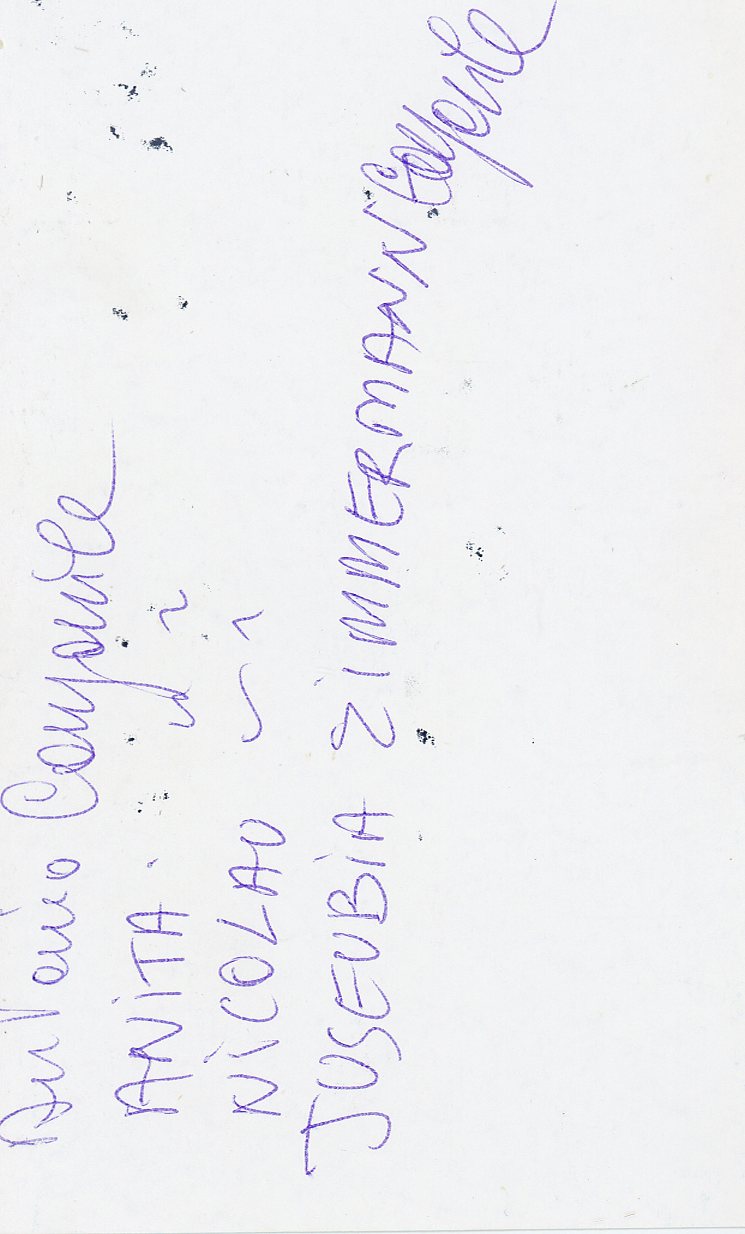 Antonio Campanile
ANITA
NICOLAU
JUSEUBIA ZIMMERMANN Campanile